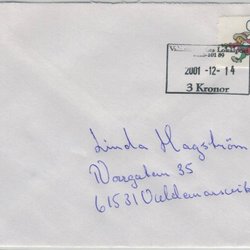 2001 -12- 14
3 Kronor
Linda Hagström
Norrgatan 35
61531 Valdemarsvik